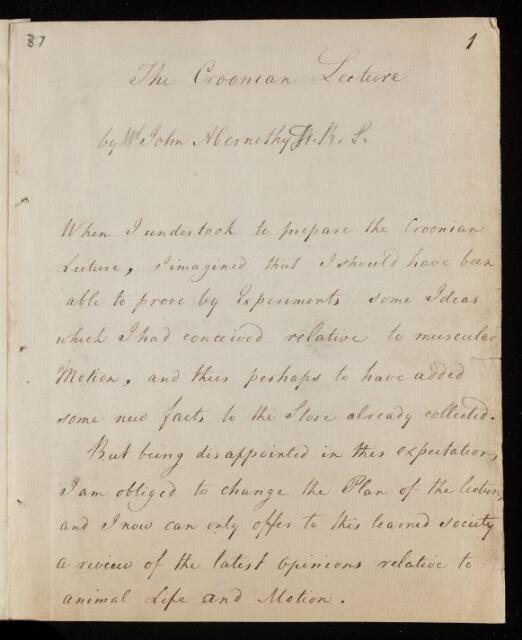 37
1
The Croonian Lecture
by Mr. John Abernethy F.R.S.
When I undertook to prepare the Croonian
Lecture, I imagined that I should have been
able to prove by Experiments some Ideas
which I had conceived relative to muscular
Motion, and thus perhaps to have added
some new facts to the Store already collected.
But being disappointed in this expectation,
I am obliged to change the Plan of the lecture,
and I now can only offer to this learned society
a review of the latest opinions relative to
animal Life and Motion.